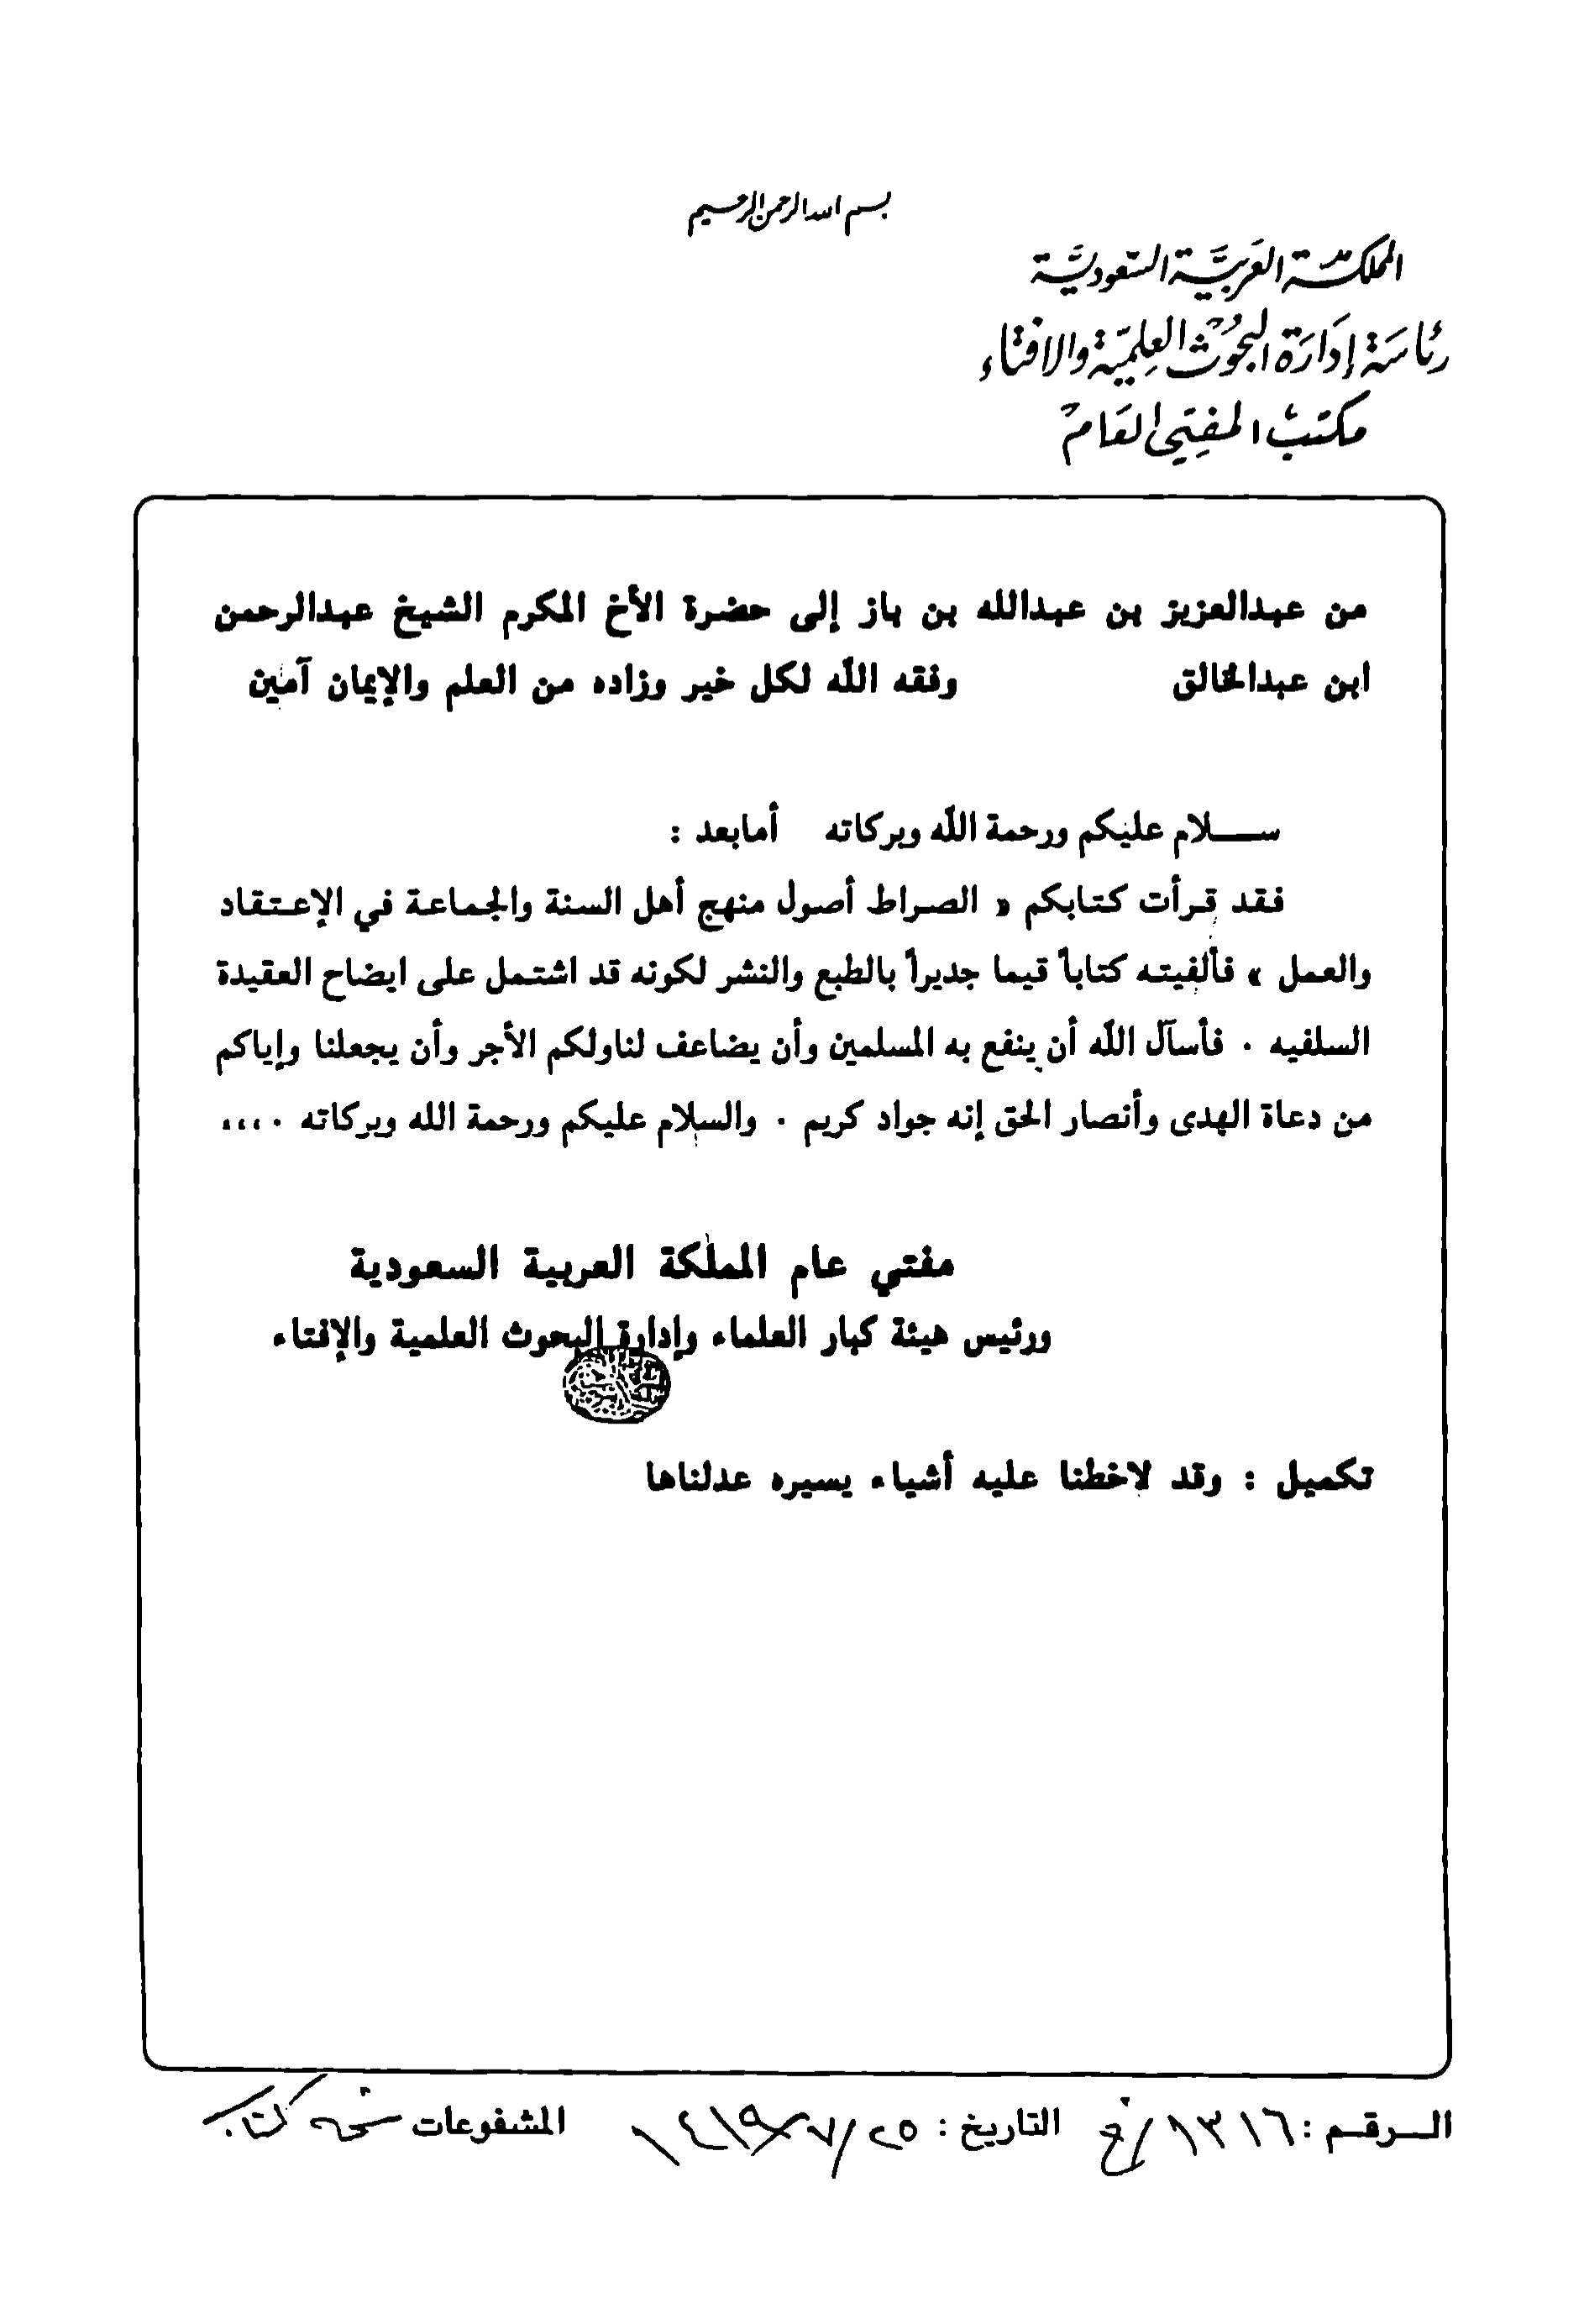 بسم الله الرحمن الرحيم
المملكة العربية السعودية
رئاسة إدارة البحوث العلمية والافتاء
مكتب المفتي العام
من عبدالعزيز بن عبدالله بن باز إلى حضرة الأخ المكرم الشيخ عبدالرحمن
ابن عبدالخالق وفقه الله لكل خير وزاده من العلم والإيمان آمين
ســلام عليكم ورحمة الله وبركاته أمابعد :
فقد قرأت كتابكم « الصراط أصول منهج أهل السنة والجماعة في الإعتقاد
والعمل » فألفيته كتاباً قيما جديراً بالطبع والنشر لكونه قد اشتمل على ايضاح العقيدة
السلفيه . فأسآل الله أن ينفع به المسلمين وأن يضاعف لناولكم الأجر وأن يجعلنا وإياكم
من دعاة الهدى وأنصار الحق إنه جواد كريم . والسلام عليكم ورحمة الله وبركاته ....
مفتي عام المملكة العربية السعودية
ورئيس هيئة كبار العلماء وإدارة البحوث العلمية والإفتاء
تكميل : وقد لاخطنا عليه أشياء يسيره عدلناها
الـرقـم : ١٣١٦/خ التاريخ : ٢٥/٧/١٤١٩ المشفوعات نسخة كتاب